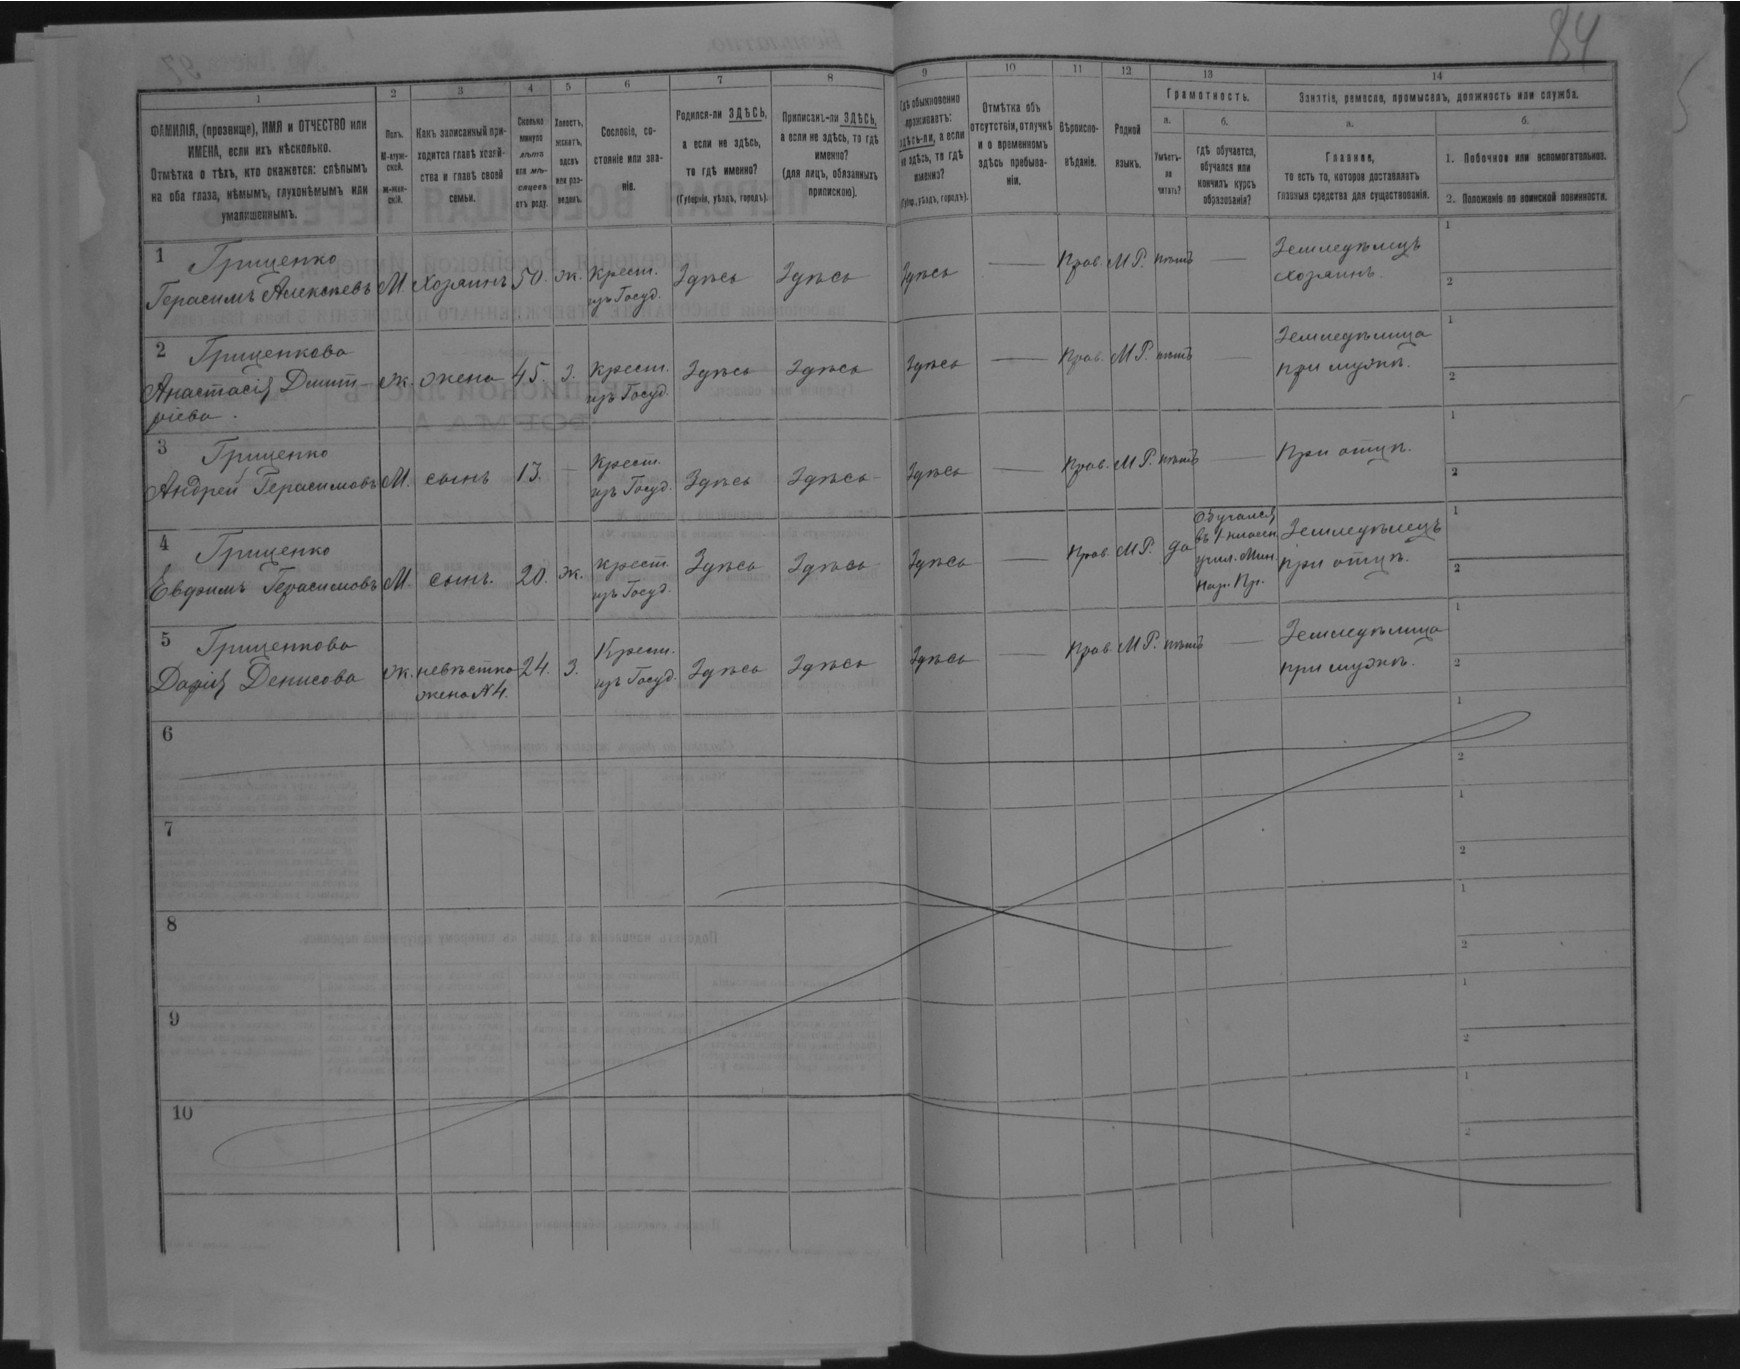 84
1
2
3
4
5
6
7
8
9
10
11
12
13
14
ФАМИЛІЯ, (прозвище), ИМЯ и ОТЧЕСТВО или
ИМЕНА, если ихъ нѣсколько.
Отмѣтка о тѣхъ, кто окажется: слѣпымъ
на оба глаза, нѣмымъ, глухонѣмымъ или
умалишеннымъ.
Полъ.
М-муж-
ской.
Ж-жен-
скій.
Какъ записанный при-
ходится главѣ хозяй-
ства и главѣ своей
семьи.
Сколько
минуло
лѣтъ
или мѣ-
сяцевъ
отъ роду.
Холостъ,
женатъ,
вдовъ
или раз-
веденъ.
Сословіе, со-
стояніе или зва-
ніе.
Родился-ли ЗДѢСЬ,
а если не здѣсь,
то гдѣ именно?
(Губернія, уѣздъ, городъ).
Приписанъ-ли ЗДѢСЬ,
а если не здѣсь, то гдѣ
именно?
(для лицъ, обязанныхъ
припискою).
Гдѣ обыкновенно
проживаетъ:
здѣсь-ли, а если
не здѣсь, то гдѣ
именно?
(Губер., уѣздъ, городъ).
Отмѣтка объ
отсутствіи, отлучкѣ
и о временномъ
здѣсь пребыва-
ніи.
Вѣроиспо-
вѣданіе.
Родной
языкъ.
Грамотность.
а.
Умѣетъ-
ли
читать?
б.
гдѣ обучается,
обучался или
кончилъ курсъ
образованія?
Занятіе, ремесло, промыселъ, должность или служба.
а.
Главное,
то есть то, которое доставляетъ
главныя средства для существованія.
б.
1. Побочное или вспомогательное.
2. Положеніе по воинской повинности.
1 Гриценко
Герасимъ Алексѣевъ
М.
Хозяинъ
50.
ж.
Крест.
изъ Госуд.
Здѣсь
Здѣсь
Здѣсь
Прав.
М.Р.
нѣтъ
Земледѣлецъ
хозяинъ.
1
2
2 Гриценкова
Анастасія Дмит-
ріева.
ж.
жена
45.
З.
Крест.
изъ Госуд.
Здѣсь
Здѣсь
Здѣсь
Прав.
М.Р.
нѣтъ
Земледѣлица
при мужѣ.
1
2
3 Гриценко
Андрей Герасимовъ
М.
сынъ
13.
Крест.
изъ Госуд.
Здѣсь
Здѣсь
Здѣсь
Прав.
М.Р.
нѣтъ
При отцѣ.
1
2
4 Гриценко
Евфимъ Герасимовъ
М.
сынъ.
20.
ж.
Крест.
изъ Госуд.
Здѣсь
Здѣсь
Здѣсь
Прав.
М.Р.
да
Обучался
въ 1 классн.
учил. Мин.
Нар. Пр.
Земледѣлецъ
при отцѣ.
1
2
5 Гриценкова
Дарія Денисова
ж.
невѣстка
жена N4.
24.
З.
Крест.
изъ Госуд.
Здѣсь
Здѣсь
Здѣсь
Прав.
М.Р.
нѣтъ
Земледѣлица
при мужѣ.
1
2
6
1
2
7
1
2
8
1
2
9
1
2
10
1
2